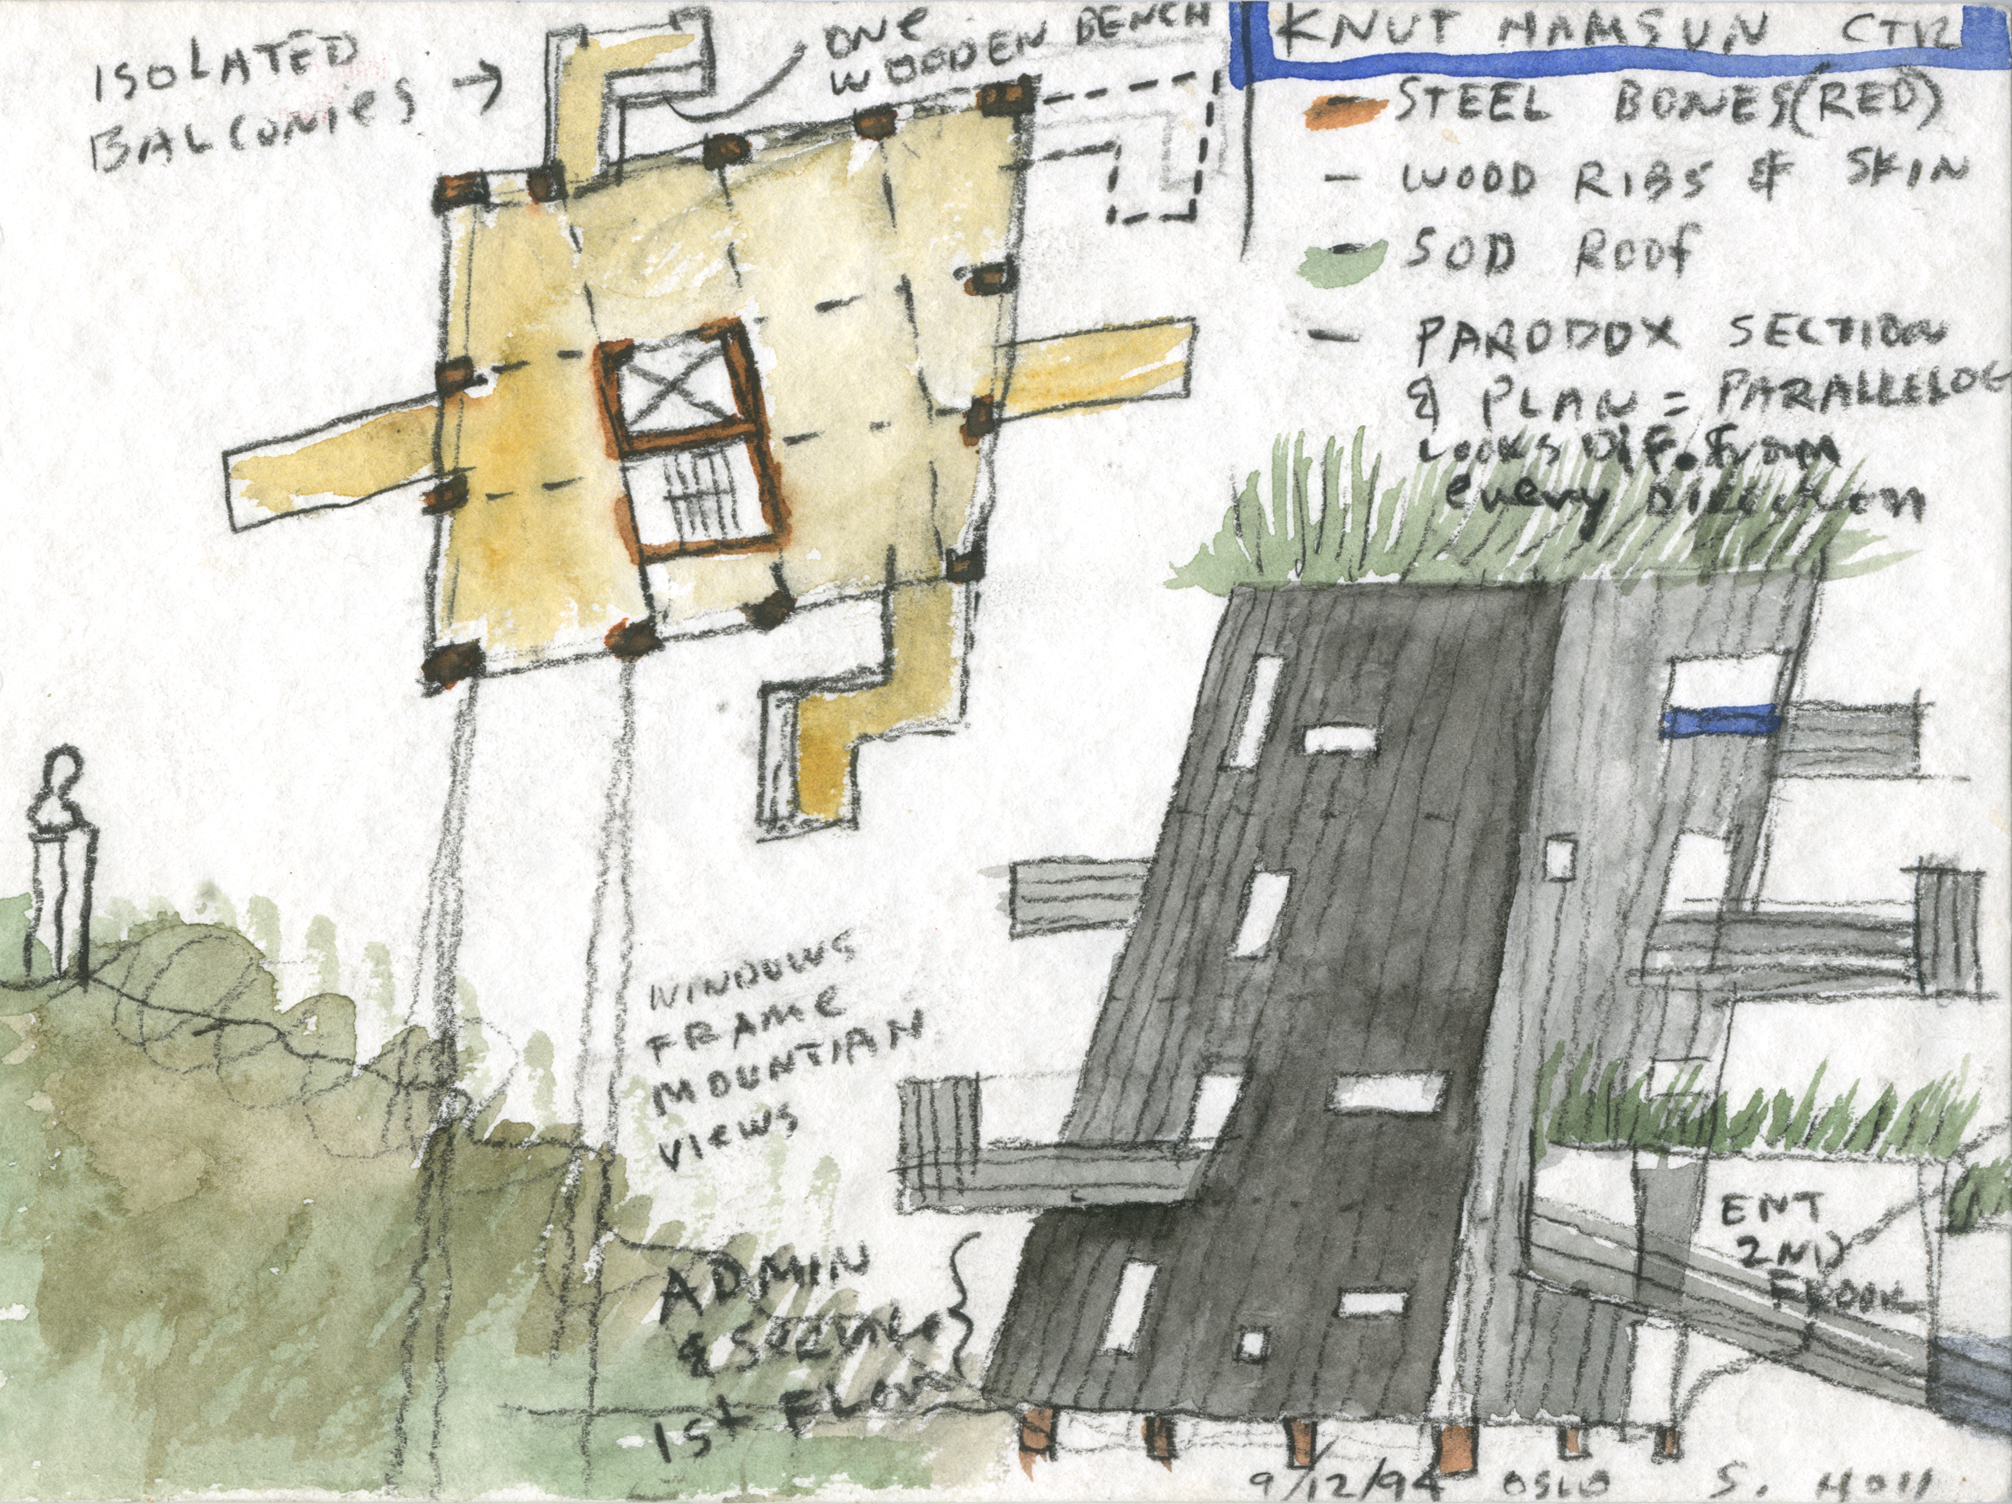 ISOLATED
BALCONIES →
ONE
WOODEN BENCH
KNUT HAMSUN CTR
- STEEL BONES (RED)
- WOOD RIBS & SKIN
- SOD ROOF
- PARODOX SECTION
& PLAN = PARALLELOG
LOOKS DIF. FROM
every DIRECTION
WINDOWS
FRAME
MOUNTIAN
VIEWS
ADMIN
& SERVICE
1st FLOOR
ENT
2ND
FLOOR
9/12/94 OSLO S. HOLL